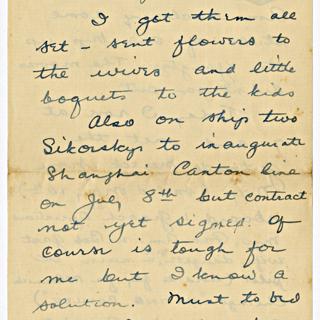 I got them all
set - sent flowers to
the wives and little
boquets to the kids
Also on ship two
Sikorskys to inaugurate
Shanghai Canton line
on July 8th but contract
not yet signed. Of
course is tough for
me but I know a
solution. Must to bed